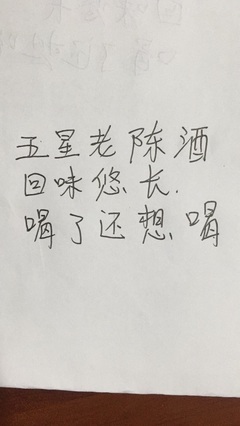 五星老陈酒
回味悠长.
喝了还想喝